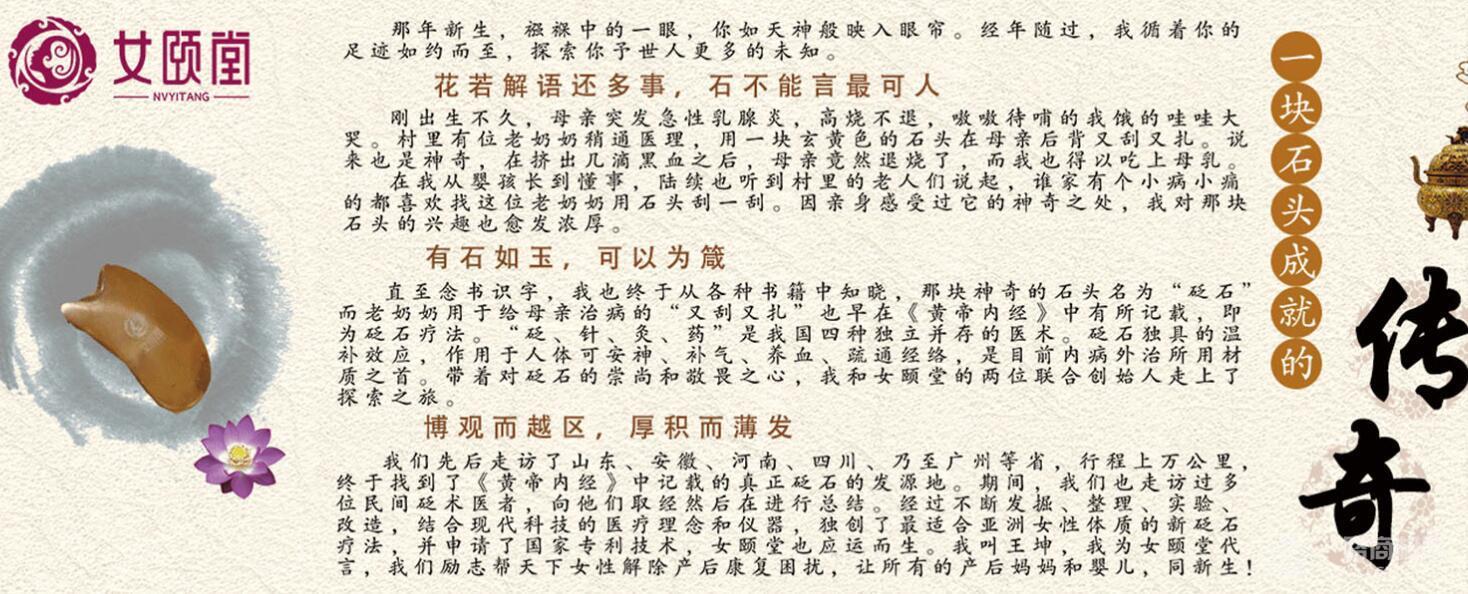 女颐堂
NVYITANG
那年新生，襁褓中的一眼，你如天神般映入眼帘。经年随过，我循着你的
足迹如约而至，探索你予世人更多的未知。
花若解语还多事，石不能言最可人
刚出生不久，母亲突发急性乳腺炎，高烧不退，嗷嗷待哺的我饿的哇哇大
哭。村里有位老奶奶稍通医理，用一块玄黄色的石头在母亲后背又刮又扎。说
来也是神奇，在挤出几滴黑血之后，母亲竟然退烧了，而我也得以吃上母乳。
在我从婴孩长到懂事，陆续也听到村里的老人们说起，谁家有个小病小痛
的都喜欢找这位老奶奶用石头刮一刮。因亲身感受过它的神奇之处，我对那块
石头的兴趣也愈发浓厚。
有石如玉，可以为箴
直至念书识字，我也终于从各种书籍中知晓，那块神奇的石头名为“砭石”
而老奶奶用于给母亲治病的“又刮又扎”也早在《黄帝内经》中有所记载，即
为砭石疗法。“砭、针、灸、药”是我国四种独立并存的医术。砭石独具的温
补效应，作用于人体可安神、补气、养血、疏通经络，是目前内病外治所用材
质之首。带着对砭石的崇尚和敬畏之心，我和女颐堂的两位联合创始人走上了
探索之旅。
博观而越区，厚积而薄发
我们先后走访了山东、安徽、河南、四川、乃至广州等省，行程上万公里，
终于找到了《黄帝内经》中记载的真正砭石的发源地。期间，我们也走访过多
位民间砭术医者，向他们取经然后在进行总结。经过不断发掘、整理、实验、
改造，结合现代科技的医疗理念和仪器，独创了最适合亚洲女性体质的新砭石
疗法，并申请了国家专利技术，女颐堂也应运而生。我叫王坤，我为女颐堂代
言，我们励志帮天下女性解除产后康复困扰，让所有的产后妈妈和婴儿，同新生！
一块石头成就的
传奇